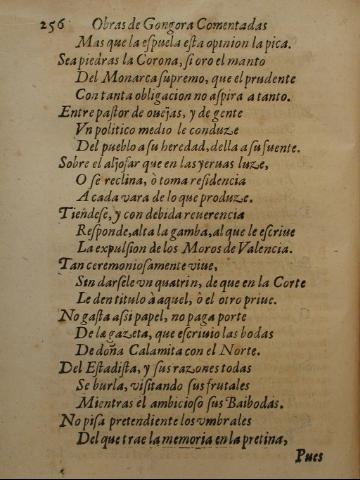 256 Obras de Gongora Comentadas
Mas que la espuela esta opinion la pica.
Sea piedras la Corona, si oro el manto
Del Monarca supremo, que el prudente
Con tanta obligacion no aspira a tanto.
Entre pastor de ouejas, y de gente
Vn politico medio le conduze
Del pueblo a su heredad, della a su fuente.
Sobre el aljofar que en las yeruas luze,
O se reclina, ò toma residencia
A cada vara de lo que produze.
Tiendese, y con debida reuerencia
Responde, alta la gamba, al que le escriue
La expulsion de los Moros de Valencia.
Tan ceremoniosamente viue,
Sin darsele vn quatrin, de que en la Corte
Le den titulo à aquel, ò el otro priue.
No gasta assi papel, no paga porte
De la gazeta, que escriuio las bodas
De doña Calamita con el Norte.
Del Estadista, y sus razones todas
Se burla, visitando sus frutales
Mientras el ambicioso sus Baibodas.
No pisa pretendiente los vmbrales
Del que trae la memoria en la pretina,
Pues